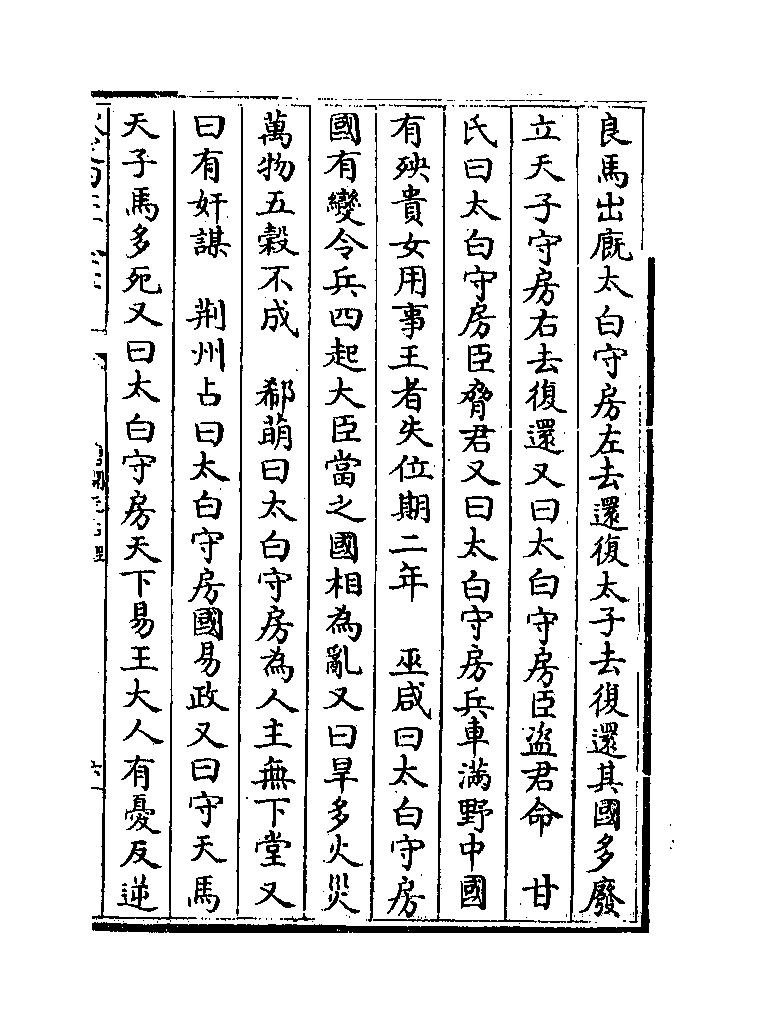 良馬出廐太白守房左去還復太子去復還其國多廢
立天子守房右去復還又曰太白守房臣盜君命　甘
氏曰太白守房臣脅君又曰太白守房兵車滿野中國
有殃貴女用事王者失位期二年　巫咸曰太白守房
國有變令兵四起大臣當之國相為亂又曰旱多火災
萬物五穀不成　郗萌曰太白守房為人主無下堂又
曰有奸謀　荆州占曰太白守房國易政又曰守天馬
天子馬多死又曰太白守房天下易王大人有憂反逆